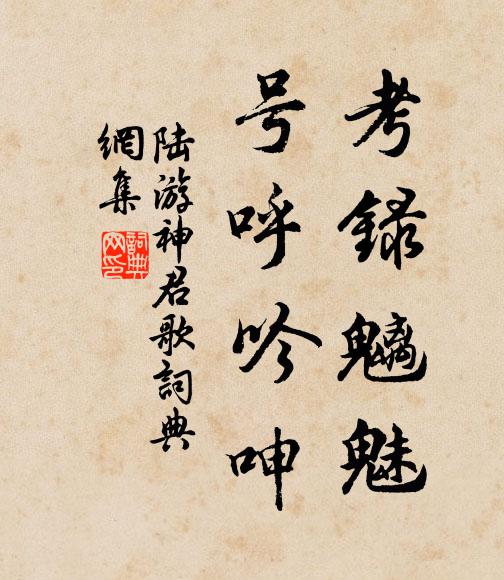 考録魑魅
号呼吟呻
陆游神君歌詞典
網集
詞典
网印